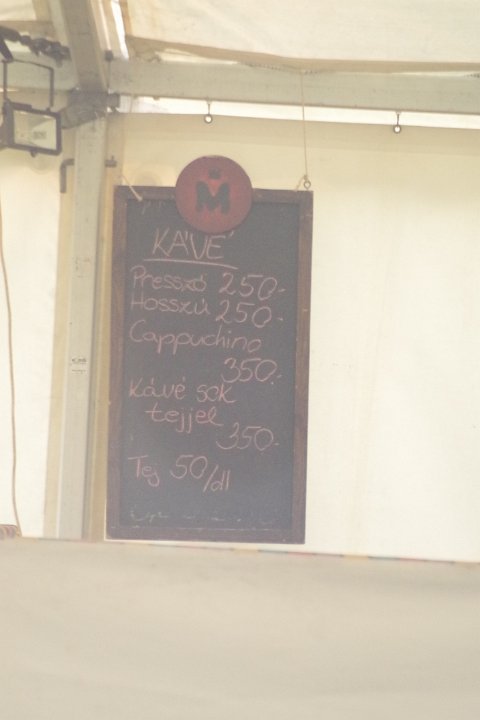 M
KÁVÉ
Presszó 250.-
Hosszú 250.-
Cappuchino
350.-
Kávé sok
tejjel
350.-
Tej 50/dl